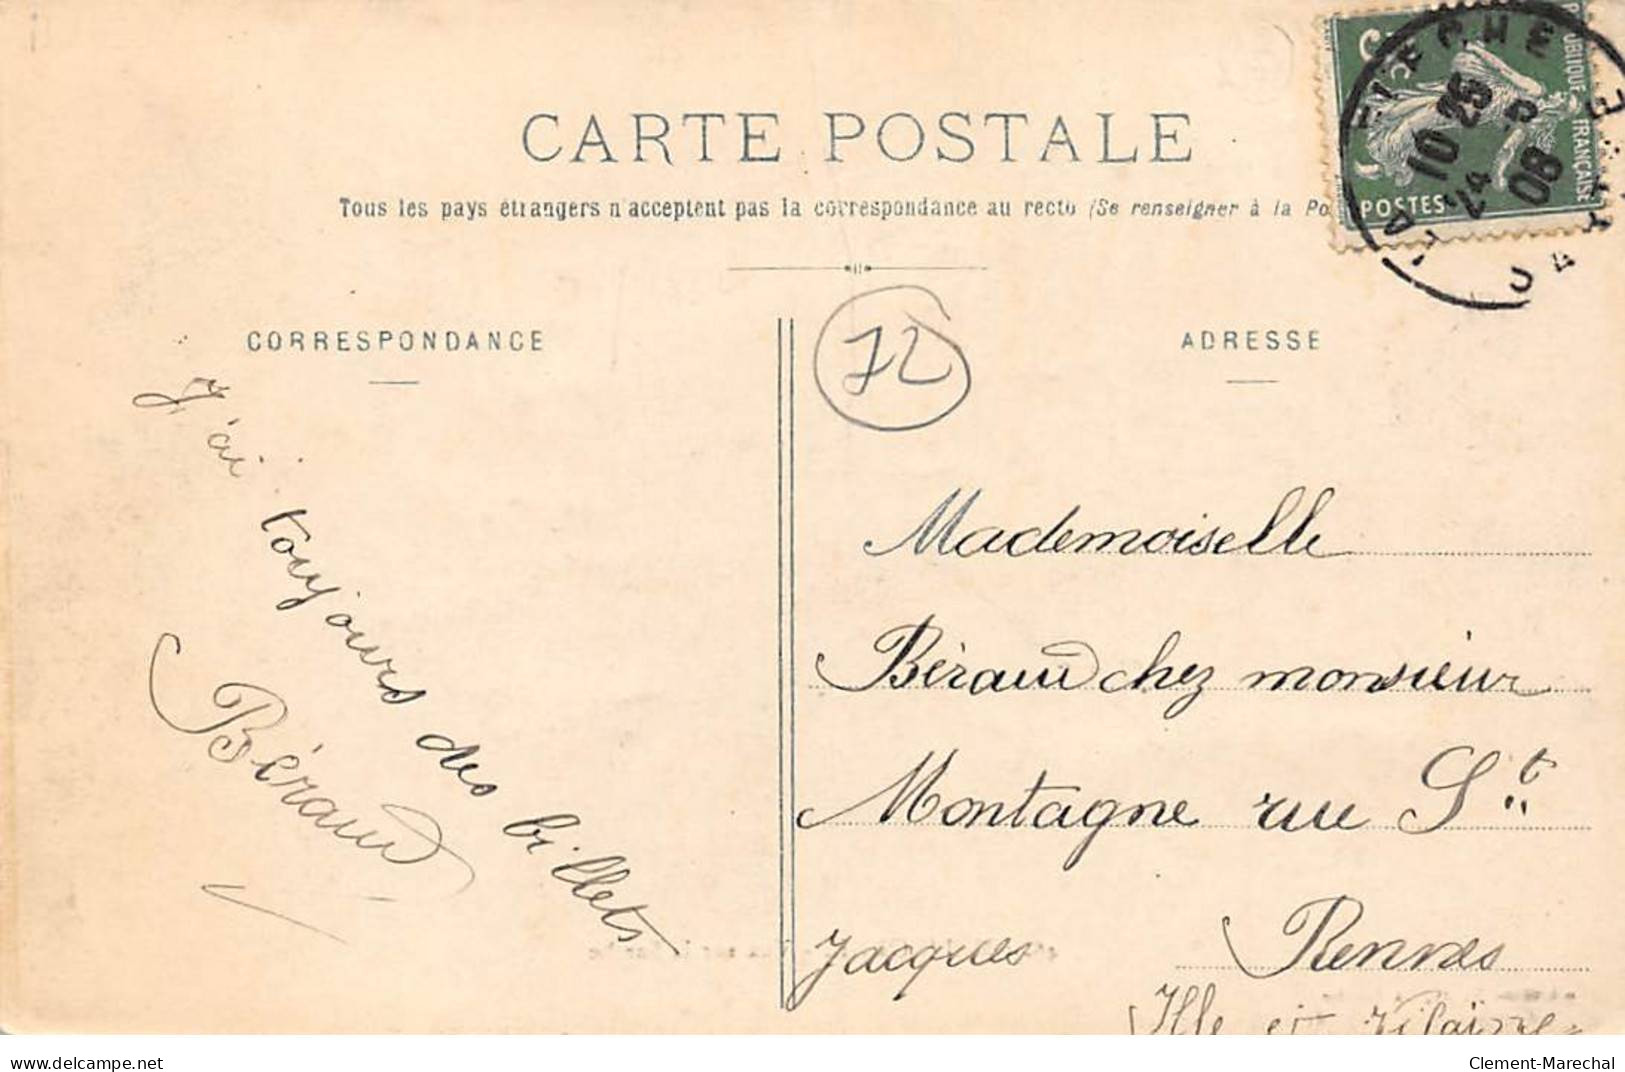 CARTE POSTALE
Tous les pays étrangers n'acceptent pas la correspondance au recto (Se renseigner à la Po
RÉPUBLIQUE FRANÇAISE
5c
POSTES
LA FLECHE
10 25
24 -5
08
SARTHE
CORRESPONDANCE
ADRESSE
72
J'ai toujours des billets
Béraud
Mademoiselle
Béraud chez monsieur
Montagne rue St
Jacques Rennes
Ille et Vilaine
www.delcampe.net
Clement-Marechal